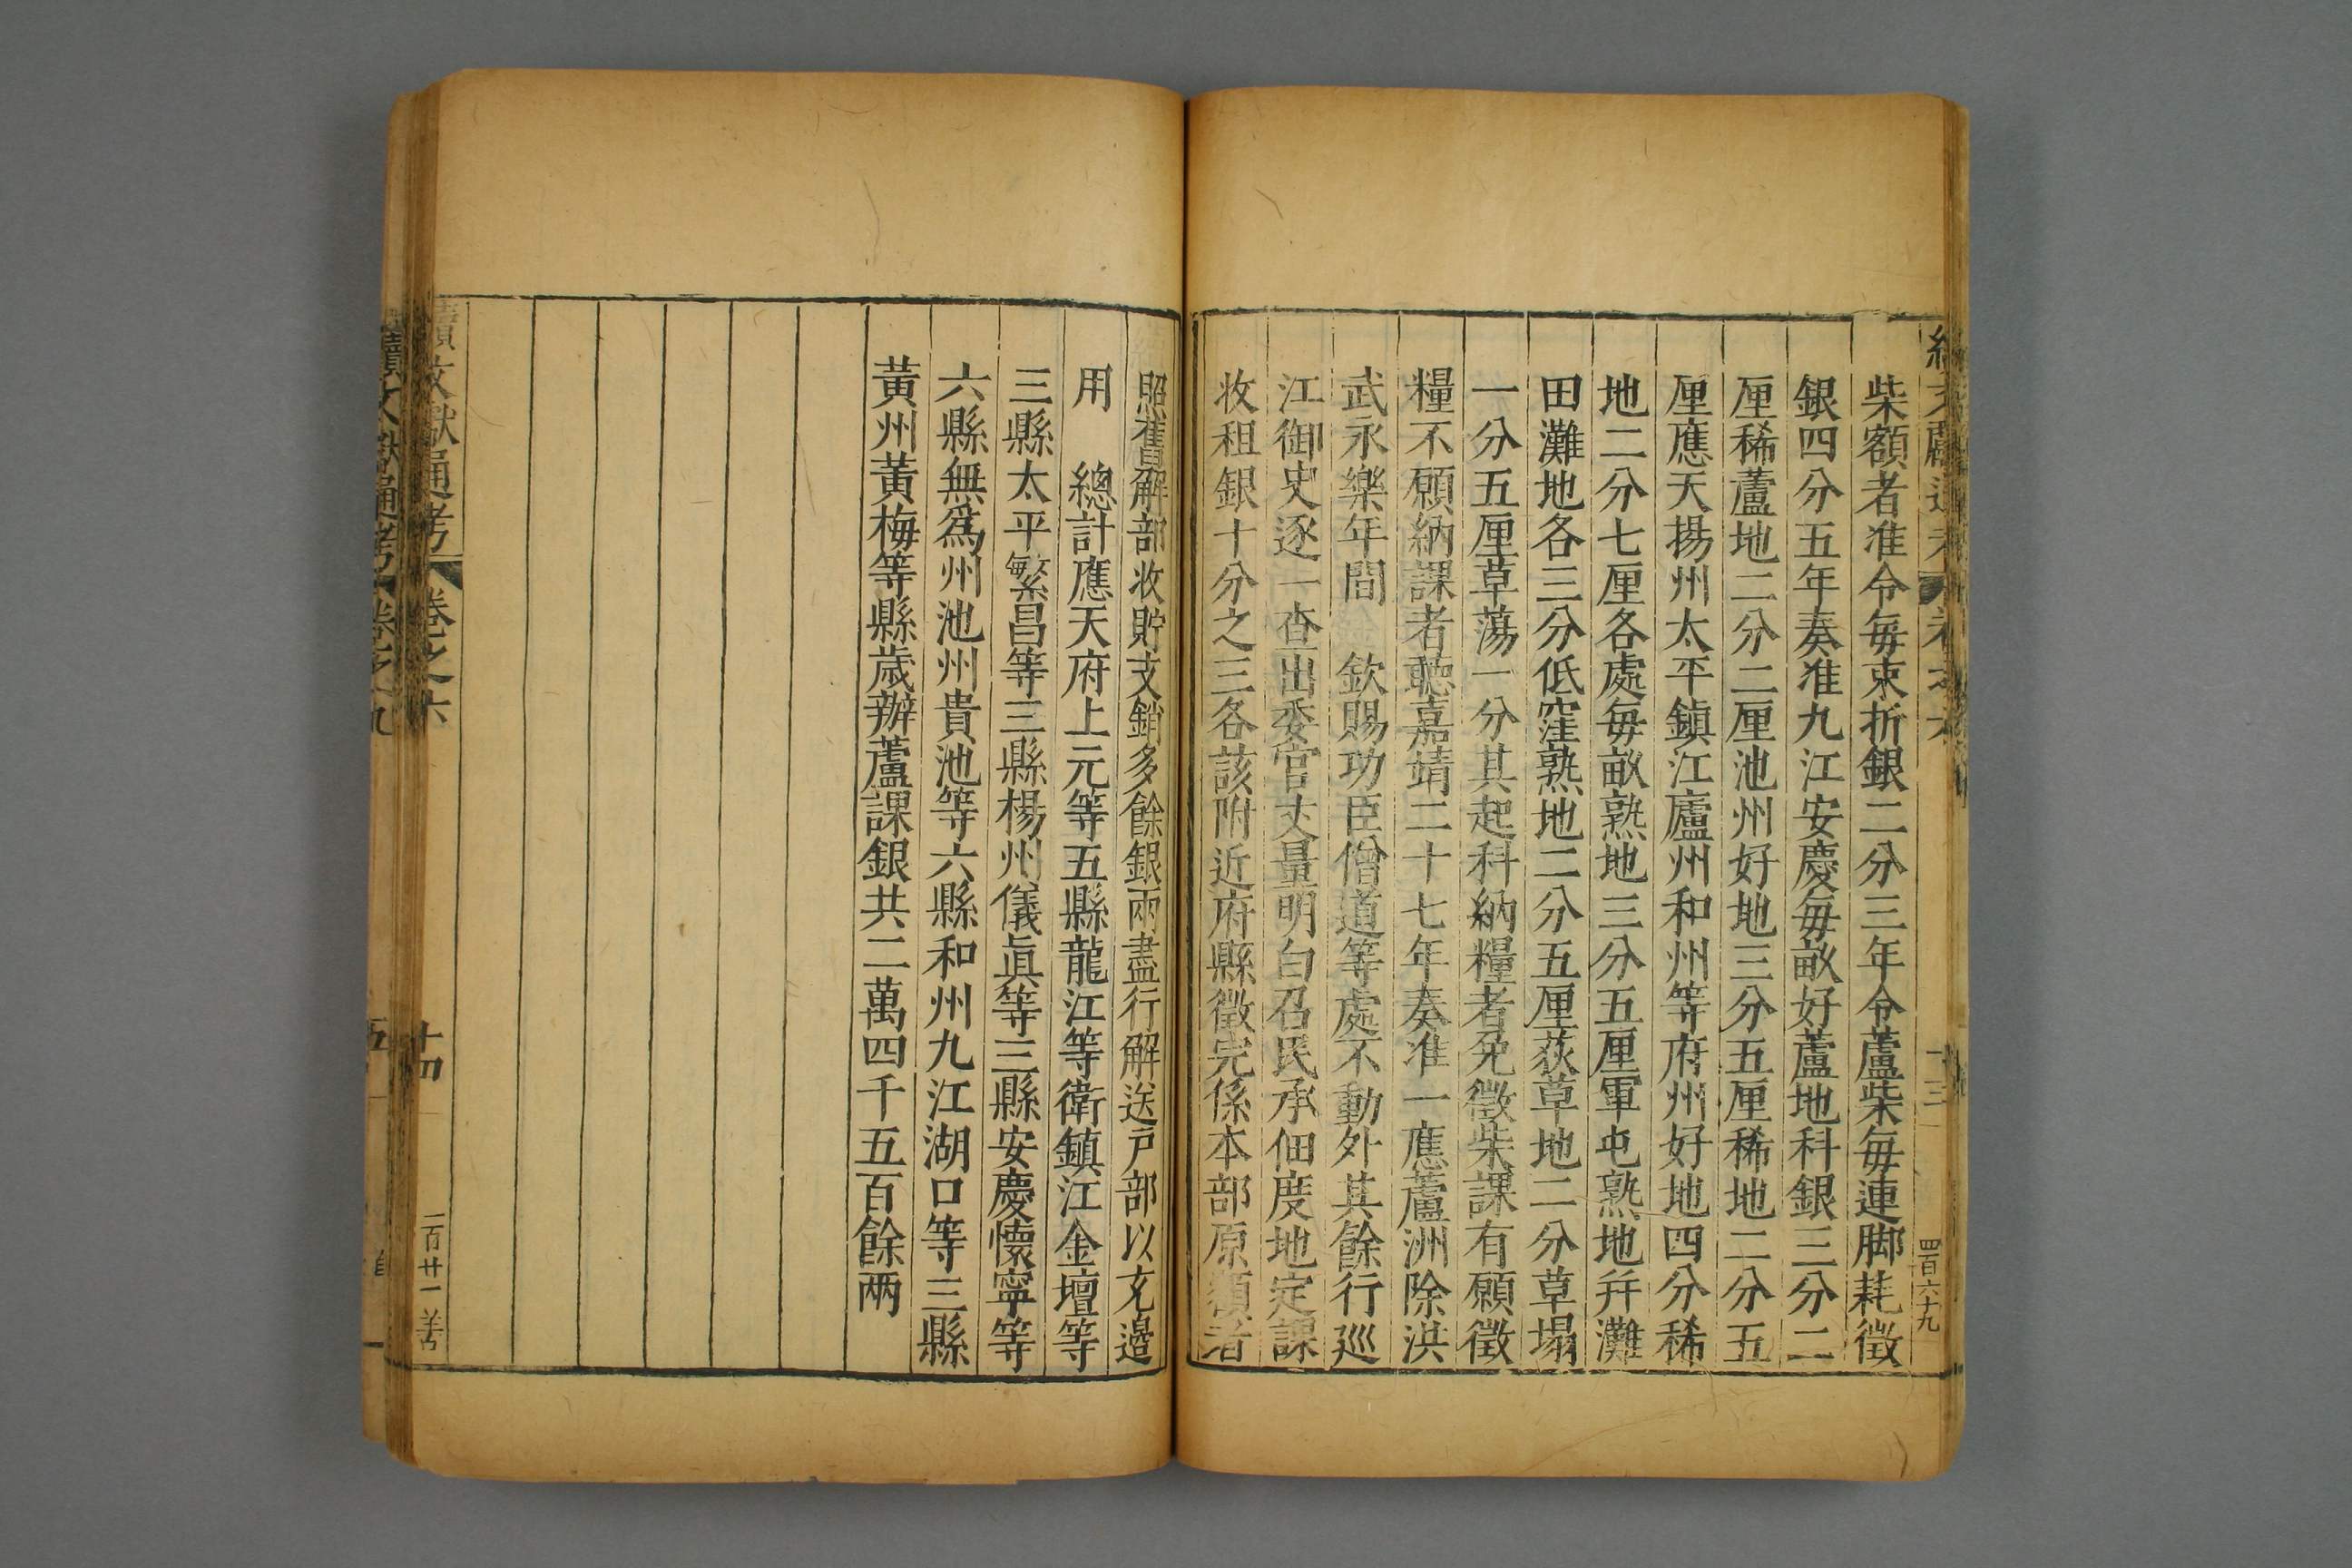 柴額者准令每束折銀二分三年令蘆柴每連脚耗徵
銀四分五年奏准九江安慶每畝好蘆地科銀三分二
厘稀蘆地二分二厘池州好地三分五厘稀地二分五
厘應天揚州太平鎮江廬州和州等府州好地四分稀
地二分七厘各處每畝熟地三分五厘軍屯熟地幷灘
田灘地各三分低窪熟地二分五厘荻草地二分草塌
一分五厘草蕩一分其起科納糧者免徵柴課有願徵
糧不願納課者聽嘉靖二十七年奏准一應蘆洲除洪
武永樂年間 欽賜功臣僧道等處不動外其餘行廵
江御史逐一查出委官丈量明白召民承佃度地定課
收租銀十分之三各該附近府縣徵完係本部原額者
照舊解部收貯支銷多餘銀兩盡行解送戶部以充邊
用 總計應天府上元等五縣龍江等衛鎮江金壇等
三縣太平繁昌等三縣楊州儀眞等三縣安慶懷寧等
六縣無爲州池州貴池等六縣和州九江湖口等三縣
黃州黃梅等縣歲辦蘆課銀共二萬四千五百餘兩
十三
四百六十九
續文獻通考 卷之六
十四
一百廿一
續文獻通考 卷之九